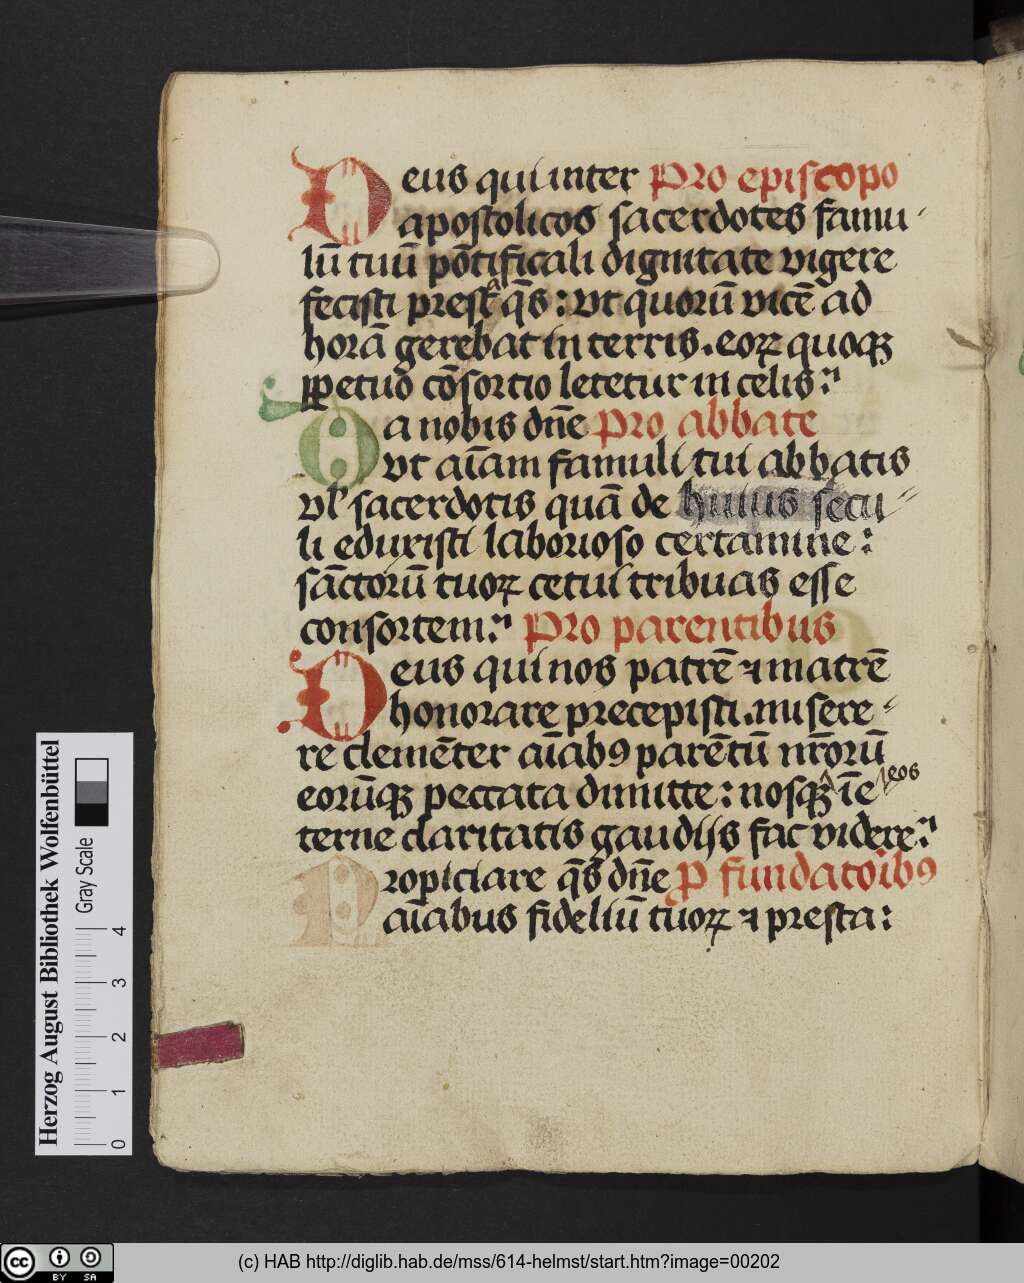 Deus qui inter Pro episcopo
apostolicos sacerdotes famu
lū tuū pōtificali dignitate vigere
fecisti prest̄a q̄s : vt quorū vicē ad
horā gerebat in terris . eoꝝ quoqꝫ
ꝑpetuo cōsortio letetur in celis :
Da nobis dn̄e Pro abbate
vt aīam famuli tui abbatis
vl' sacerdotis quā de huius secu
li eduxisti laborioso certamine :
sāctorū tuoꝝ cetui tribuas esse
consortem : Pro parentibus
Deus qui nos patrē ⁊ matrē
honorare precepisti . misere
re clemēter aīabꝯ parētū nr̄orū
eorūqꝫ peccata dimitte : nosqꝫ eos ī e
terne claritatis gaudijs fac videre :
Propiciare q̄s dn̄e P fundatoibꝯ
aīabus fideliū tuoꝝ ⁊ presta :
Herzog August Bibliothek Wolfenbüttel
Gray Scale
0 1 2 3 4
cc BY SA
(c) HAB http://diglib.hab.de/mss/614-helmst/start.htm?image=00202